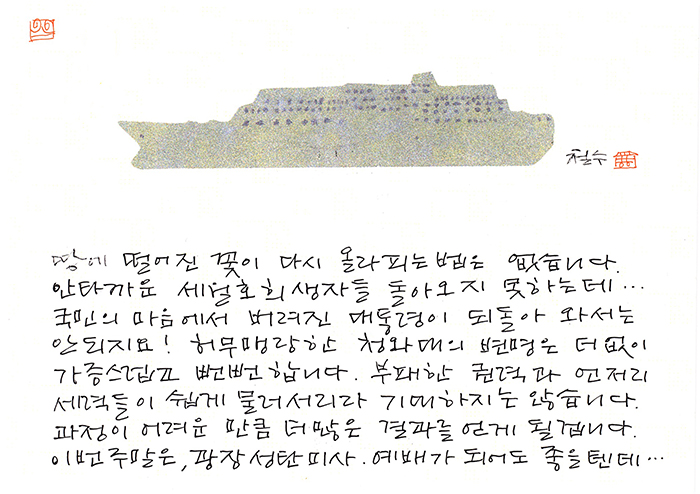 철수
땅에 떨어진 꽃이 다시 올라피는법은 없습니다.
안타까운 세월호희생자들 돌아오지 못하는데...
국민의 마음에서 버려진 대통령이 되돌아 와서는
안되지요! 허무맹랑한 청와대의 변명은 더없이
가증스럽고 뻔뻔합니다. 부패한 권력과 언저리
세력들이 쉽게 물러서리라 기대하지는 않습니다.
과정이 어려운 만큼 더많은 결과를 얻게 될겝니다.
이번주말은, 광장성탄미사. 예배가 되어도 좋을텐데...